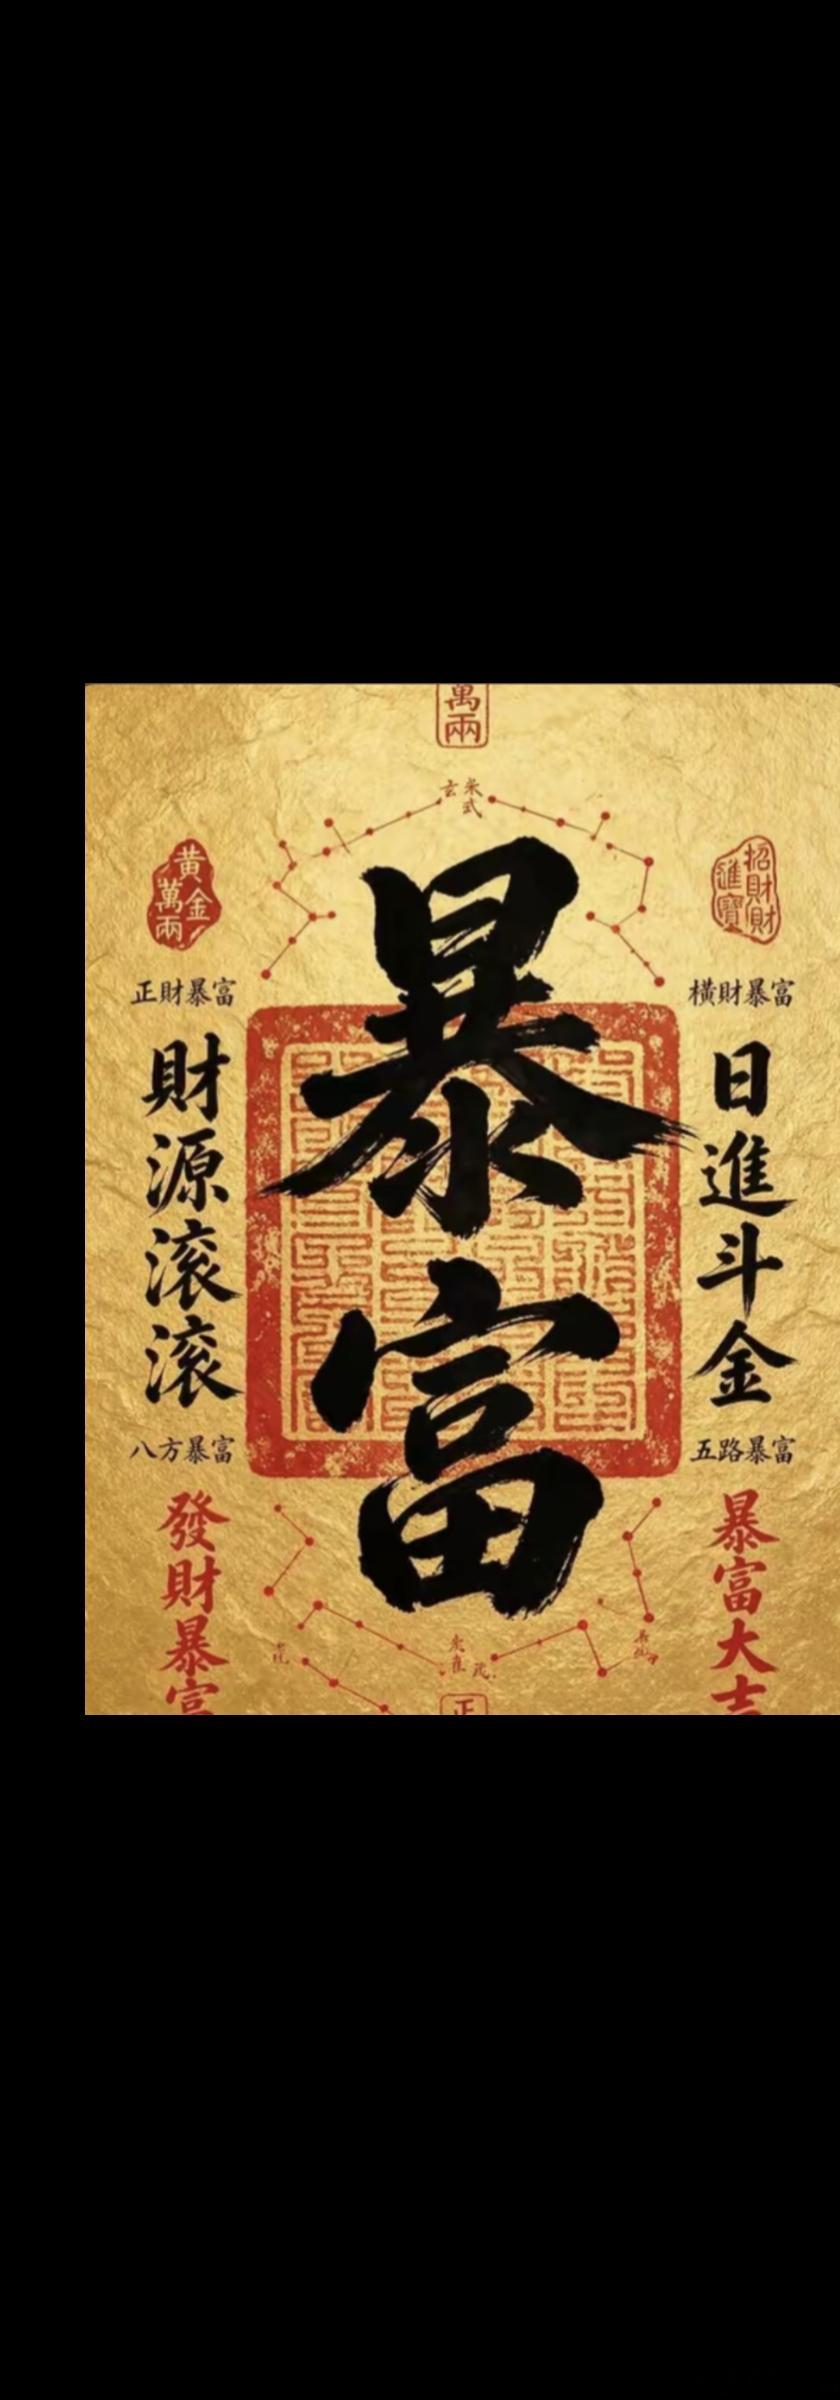 萬兩
黃金萬兩
招財進寶
正財暴富
橫財暴富
暴富
財源滾滾
日進斗金
八方暴富
五路暴富
發財暴富
暴富大吉
正